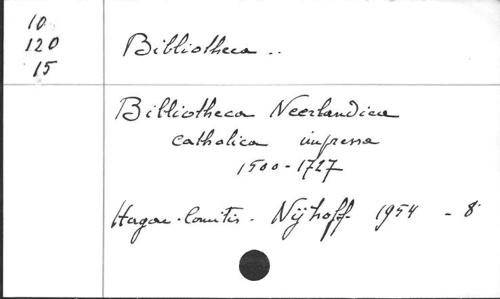 10
120
15
Bibliotheca ..
Bibliotheca Neerlandica
catholica impressa
1500-1727
Hagae-Comitis - Nijhoff 1954 - 8°